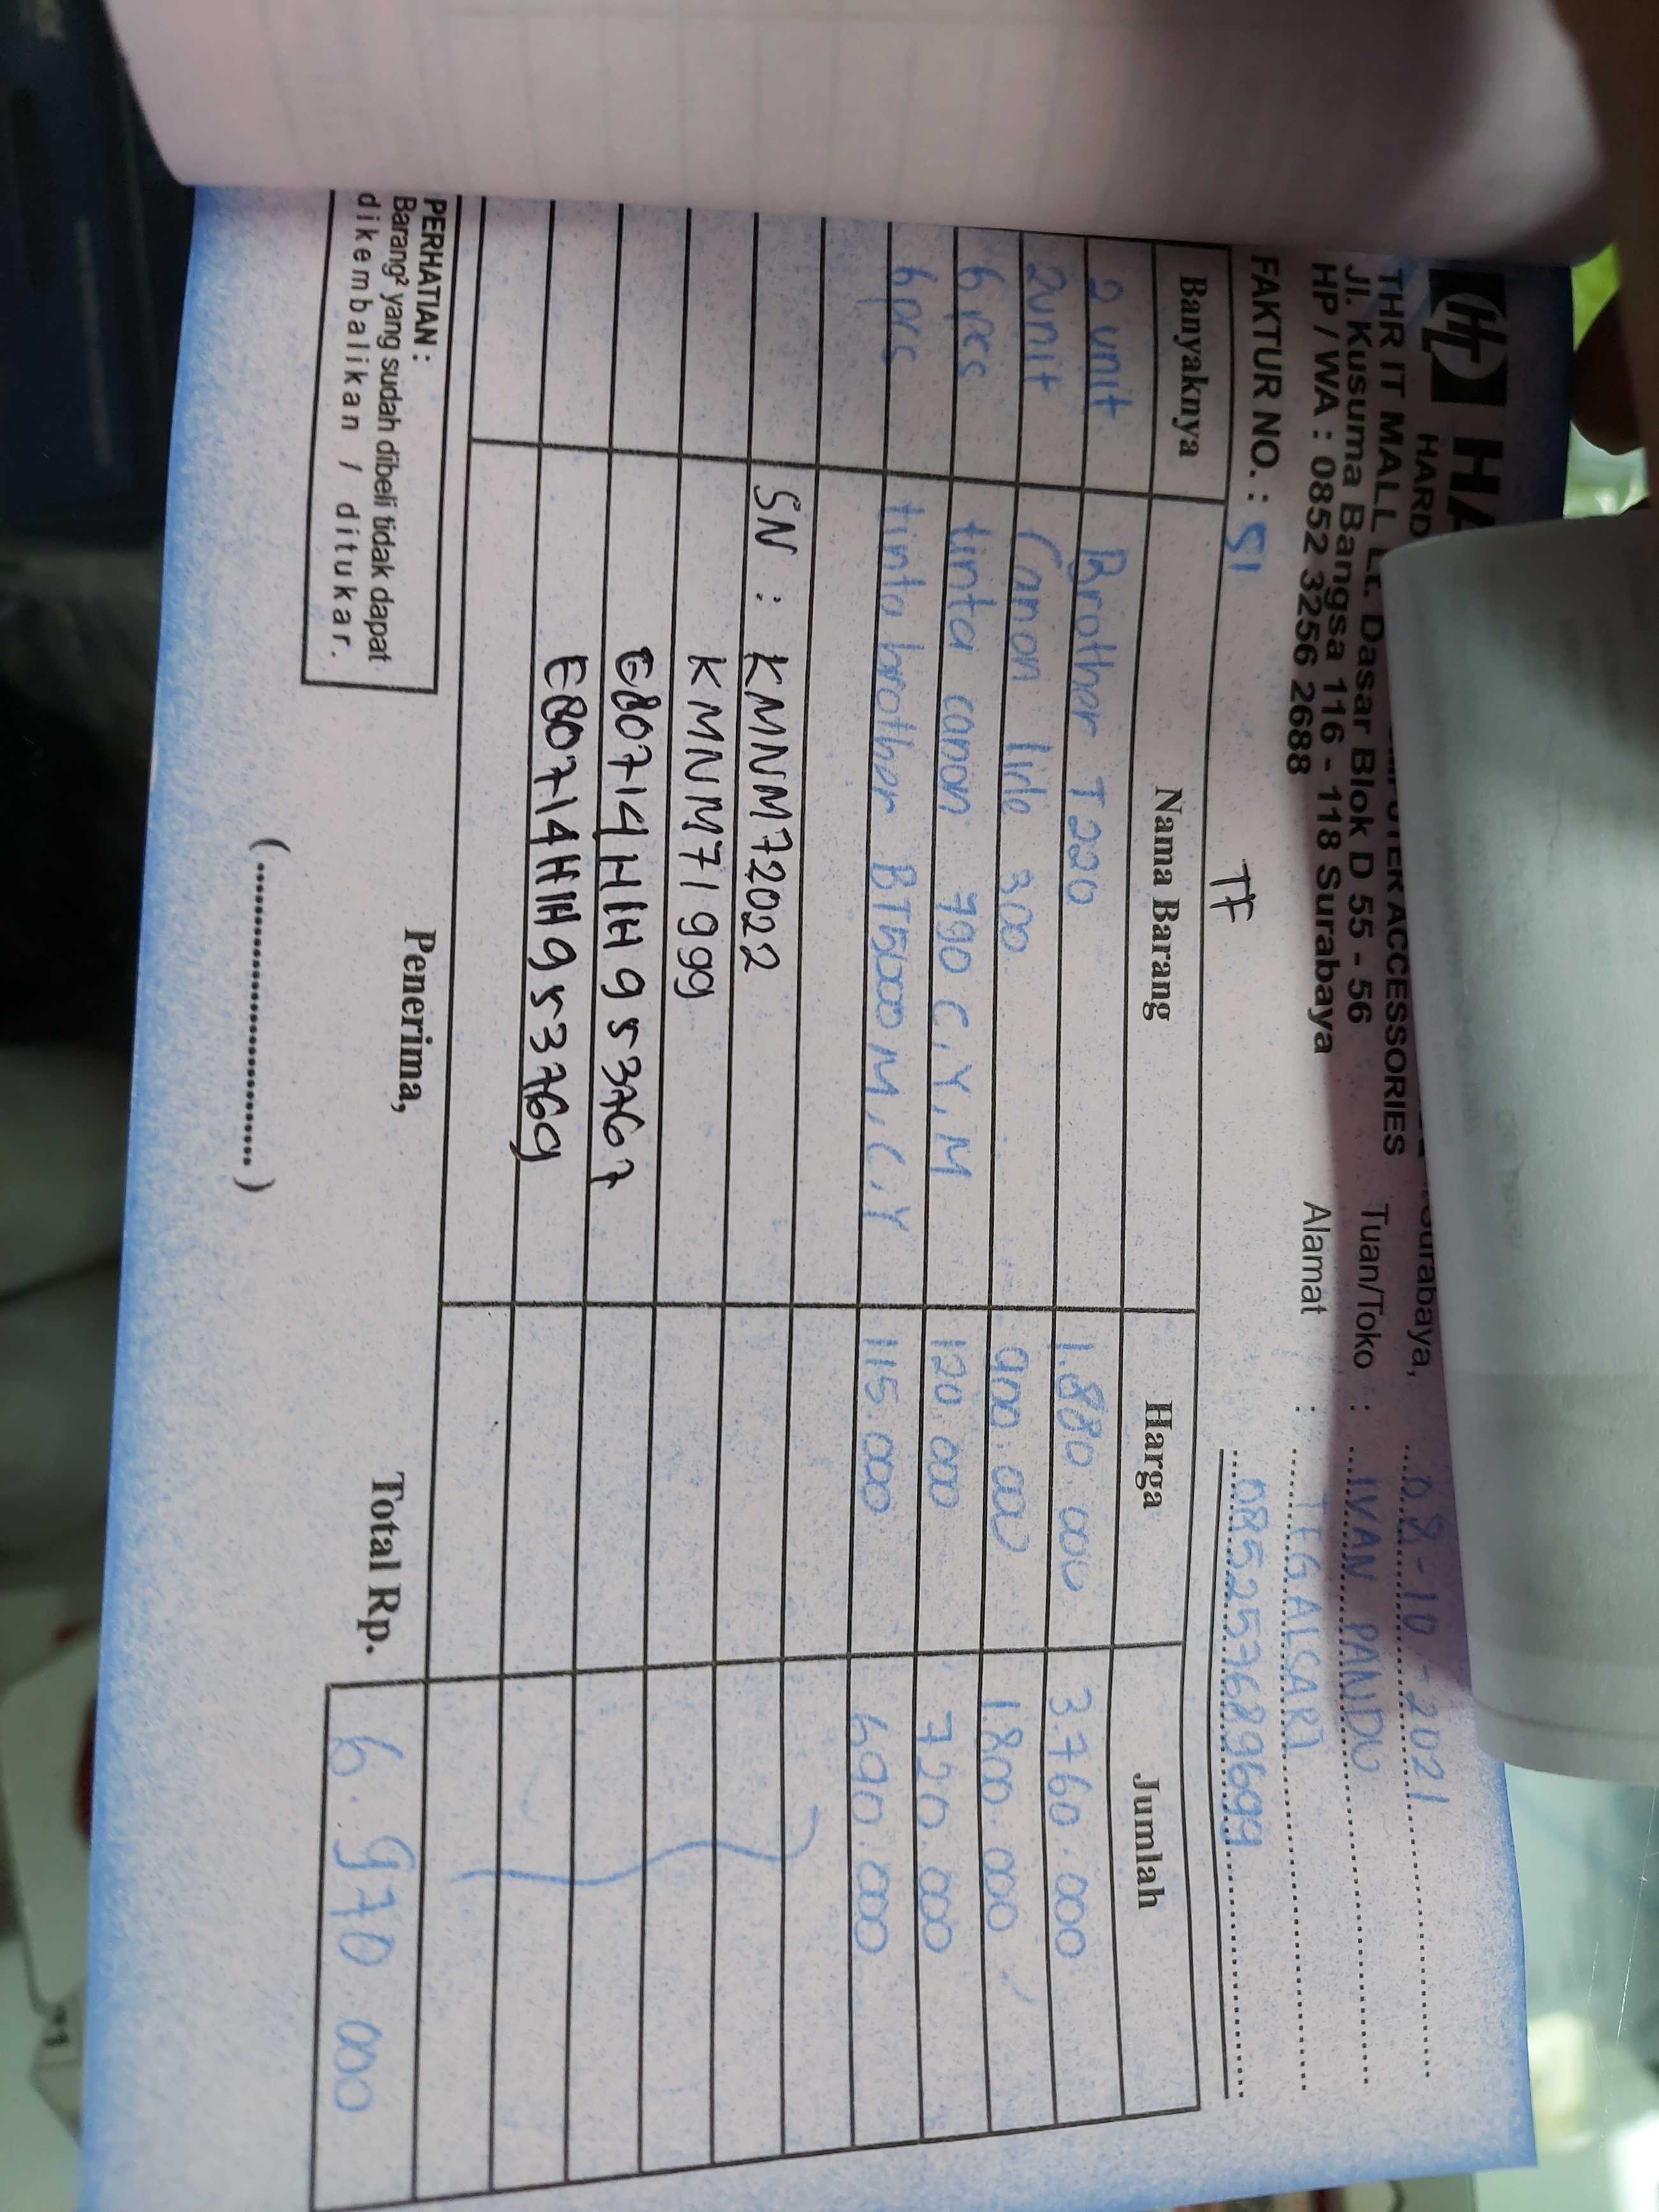 HT HA
HARD
COMPUTER ACCESSORIES
THR IT MALL Lt. Dasar Blok D 55 - 56
Jl. Kusuma Bangsa 116 - 118 Surabaya
HP / WA : 0852 3256 2688
Surabaya, 08-10-2021
Tuan/Toko : IVAN PANDU
Alamat : TEGALSARI
085257689699
FAKTUR NO. : 51 TF
Banyaknya Nama Barang Harga Jumlah
2 unit Brother T220 1.880.000 3.760.000
2 unit Canon lide 300 900.000 1.800.000
6 pcs tinta canon 790 C,Y,M 120.000 720.000
6 pcs tinta brother BT5000 M,C,Y 115.000 690.000
SN : KMNM72022
KMNM71999
E80714H1H953767
E80714H1H953769
PERHATIAN :
Barang² yang sudah dibeli tidak dapat
dikembalikan / ditukar.
Penerima,
(..............................)
Total Rp. 6.970.000